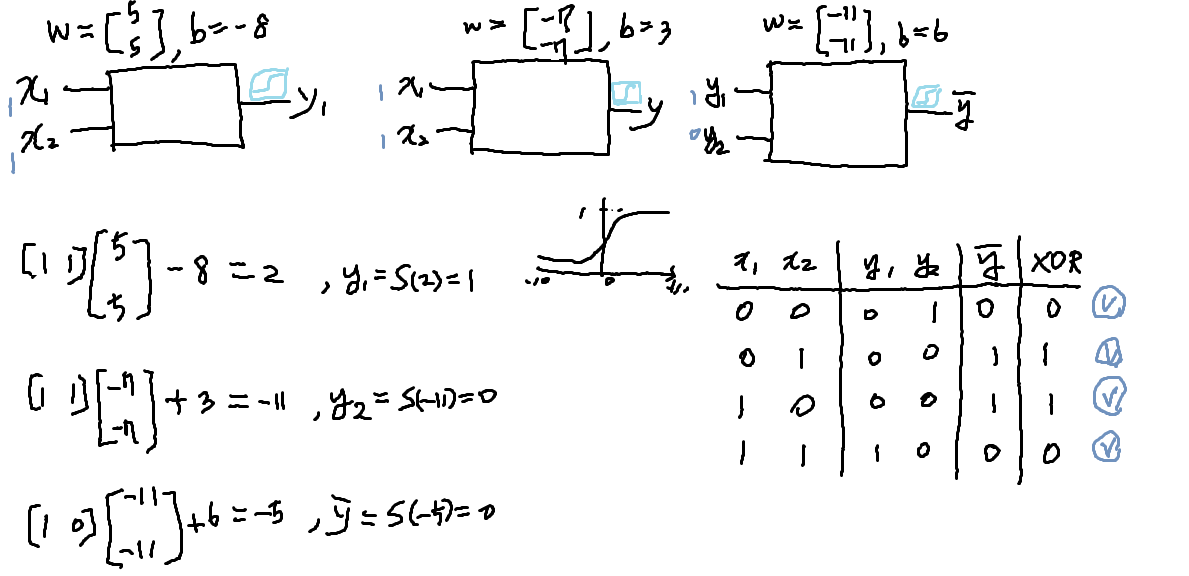 w = [5 5], b = -8
x₁
x₂
1
1
y₁
w = [-7 -7], b = 3
x₁
x₂
1
1
y
w = [-11 -11], b = 6
y₁
y₂
1
0
ȳ
[1 1] [5 5] - 8 = 2 , y₁ = S(2) = 1
[1 1] [-7 -7] + 3 = -11 , y₂ = S(-11) = 0
[1 0] [-11 -11] + 6 = -5 , ȳ = S(-5) = 0
1
0
x₁ x₂ y₁ y₂ ȳ XOR
0 0 0 1 0 0
0 1 0 0 1 1
1 0 0 0 1 1
1 1 1 0 0 0